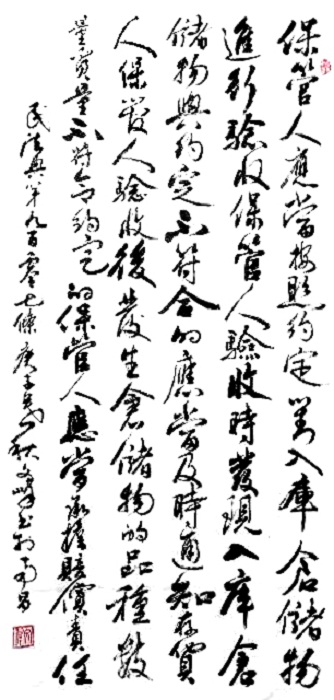 保管人應當按照約定對入庫倉儲物
進行驗收保管人驗收時發現入庫倉
儲物與約定不符合的應當及時通知存貨
人保管人驗收後發生倉儲物的品種數
量質量不符合約定的保管人應當承擔賠償責任
民法典第九百零七條庚子秋文峰書於南昌